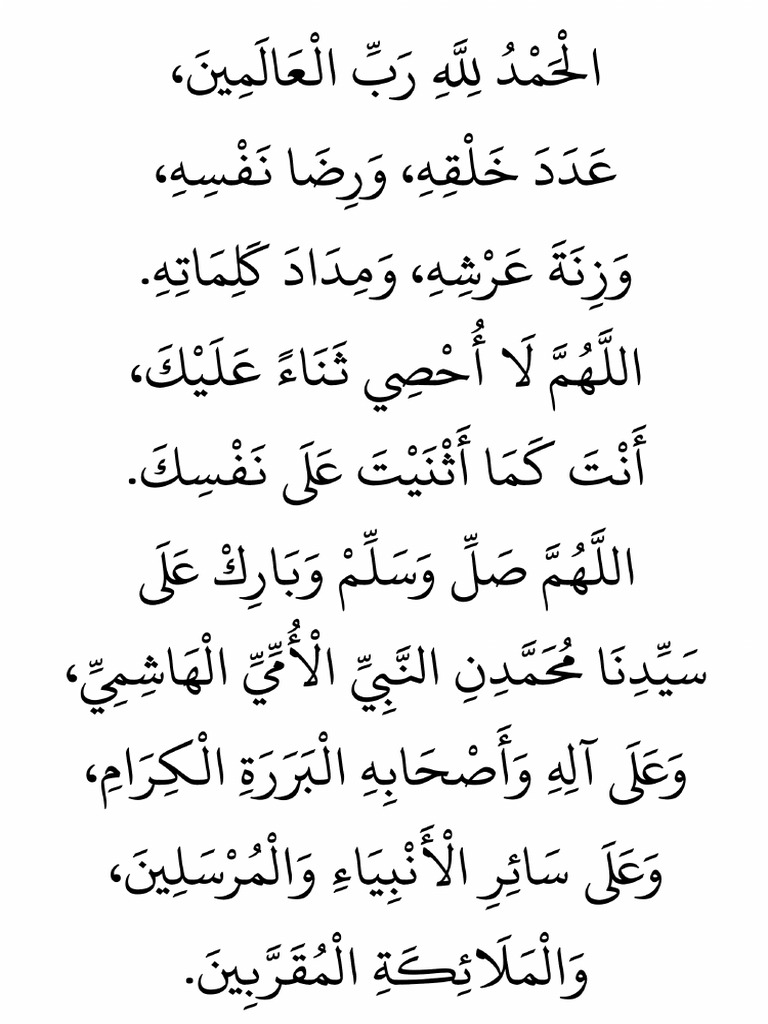 الْحَمْدُ لِلَّهِ رَبِّ الْعَالَمِينَ،
عَدَدَ خَلْقِهِ، وَرِضَا نَفْسِهِ،
وَزِنَةَ عَرْشِهِ، وَمِدَادَ كَلِمَاتِهِ.
اللَّهُمَّ لَا أُحْصِي ثَنَاءً عَلَيْكَ،
أَنْتَ كَمَا أَثْنَيْتَ عَلَى نَفْسِكَ.
اللَّهُمَّ صَلِّ وَسَلِّمْ وَبَارِكْ عَلَى
سَيِّدِنَا مُحَمَّدِنِ النَّبِيِّ الْأُمِّيِّ الْهَاشِمِيِّ،
وَعَلَى آلِهِ وَأَصْحَابِهِ الْبَرَرَةِ الْكِرَامِ،
وَعَلَى سَائِرِ الْأَنْبِيَاءِ وَالْمُرْسَلِينَ،
وَالْمَلَائِكَةِ الْمُقَرَّبِينَ.